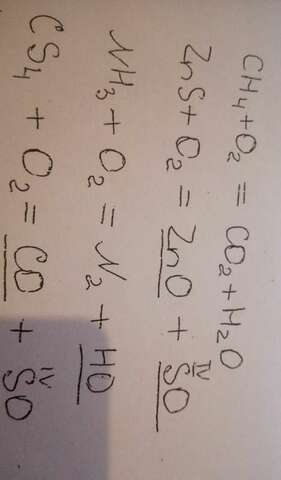 CH₄+O₂ = CO₂+H₂O
ZnS+O₂ = ZnO + SO
IV
NH₃+O₂ = N₂ + HO
CS₄ + O₂ = CO + SO
IV